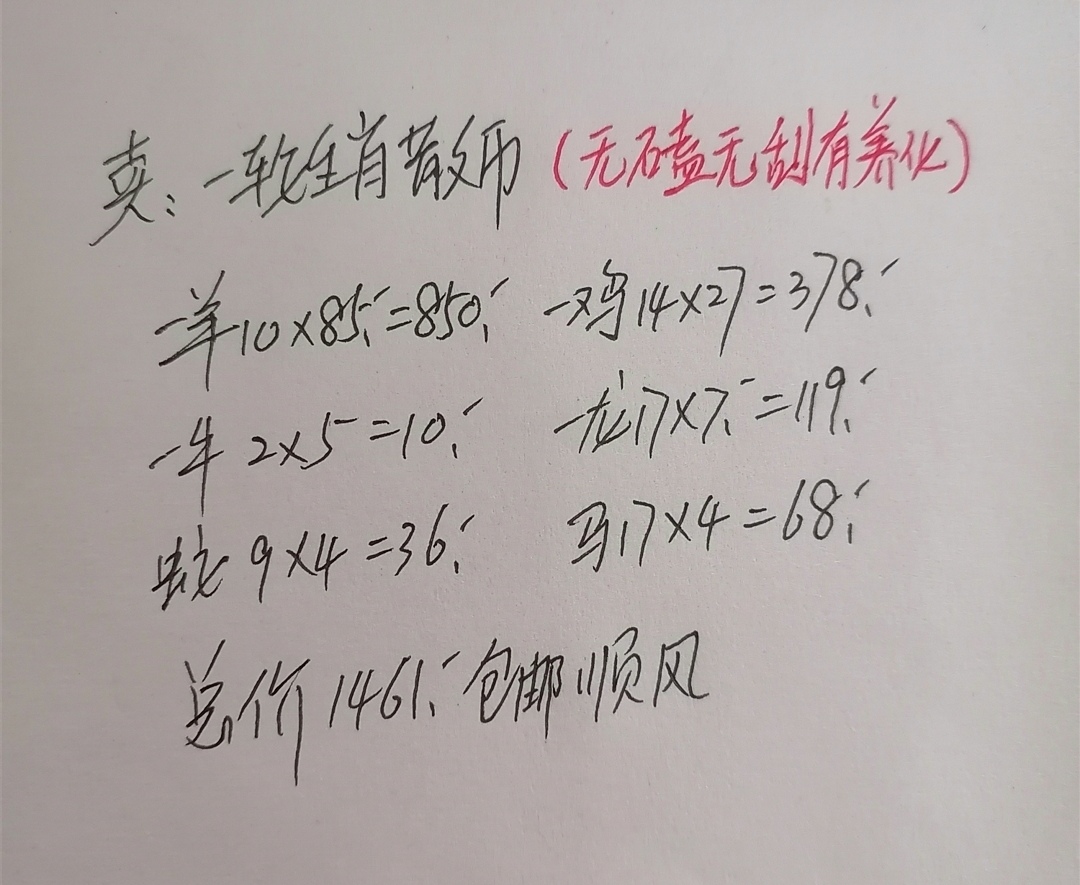 卖:一轮生肖散币(无磕无刮有养化)
一羊10×85.=850. 一鸡14×27=378.
一牛 2×5=10. 一龙17×7.=119.
蛇 9×4=36. 马17×4=68.
总价 1461. 包邮顺风